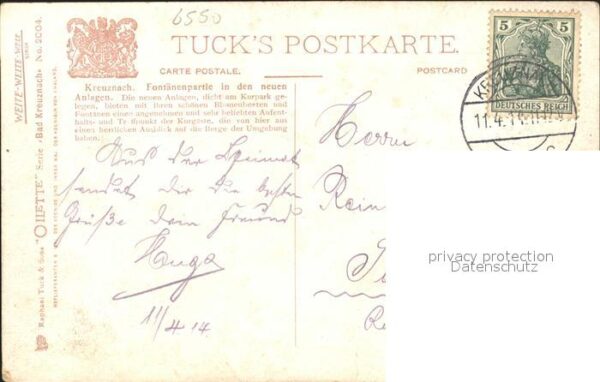 6550
TUCK'S POSTKARTE.
CARTE POSTALE.
POSTCARD
Kreuznach. Fontänenpartie in den neuen
Anlagen. Die neuen Anlagen, dicht am Kurpark ge-
legen, bieten mit ihren schönen Blumenbeeten und
Fontänen einen angenehmen und sehr beliebten Aufent-
halts- und Treffpunkt der Kurgäste, die von hier aus
einen herrlichen Ausblick auf die Berge der Umgebung
haben.
Aus der Heimat
sendet dir die besten
Grüße dein Freund
Hugo
11/4 14
Herrn
Rein
5 5
DEUTSCHES REICH
KREUZNACH
11.4.14.11-12V
privacy protection
Datenschutz
Raphael Tuck & Sons "OILETTE" Serie "Bad Kreuznach" No. 2004.